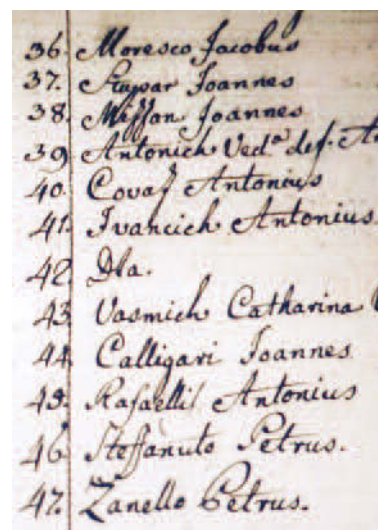 36. Moresco Jacobus
37. Stupar Joannes
38. Misson Joannes
39. Antonich Ved.ª def. An
40. Covaz Antonius
41. Ivancich Antonius.
42. Dta.
43. Vasmich Catharina
44. Calligari Joannes
45. Rafaelli Antonius
46. Steffanuto Petrus.
47. Zanello Petrus.